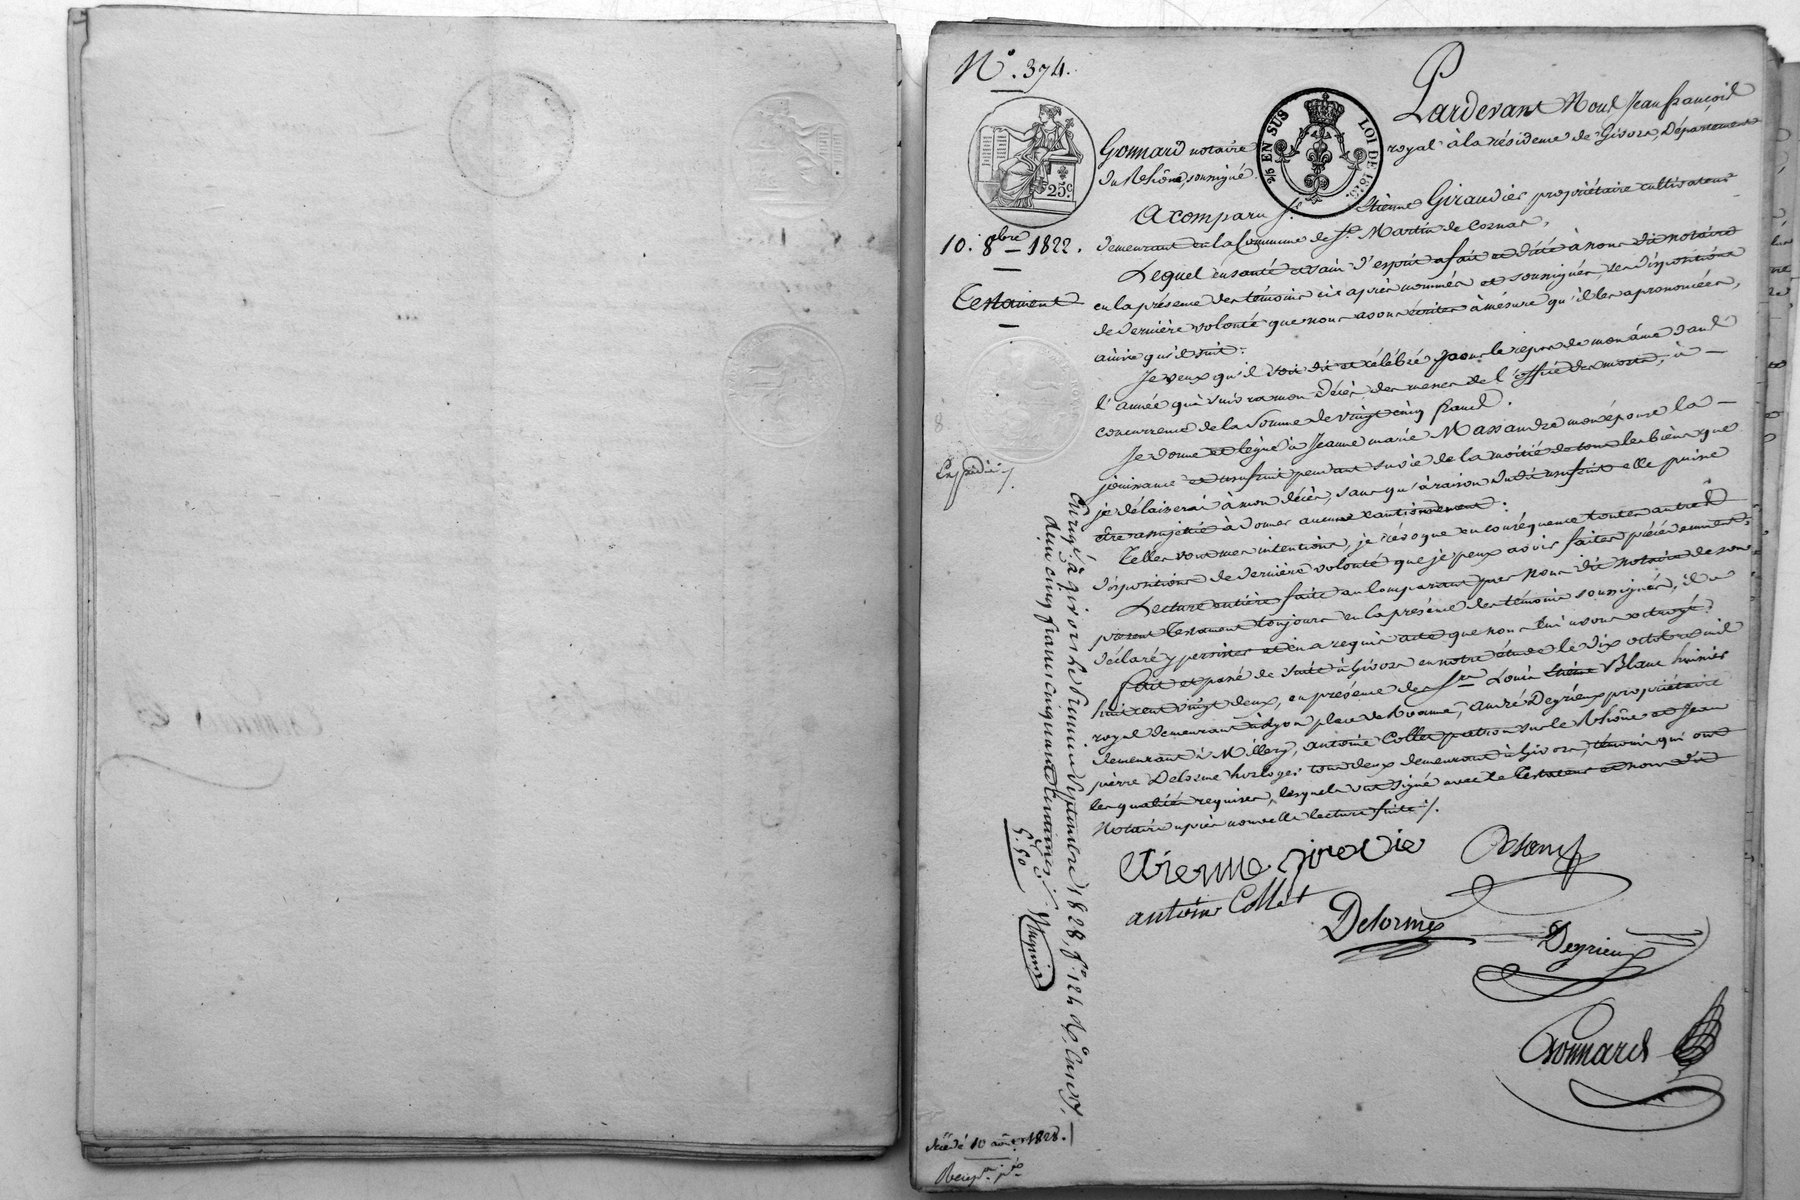 N.° 374.
Pardevant Nous Jean françois
Gonnard notaire royal à la résidence de Givors, Département
du Rhône, soussigné
25 EN SUS LOI DE 1816.
25.c
10. 8bre 1822.
Testament
Expédié ./.
A comparu sr. Etienne Giraudier propriétaire cultivateur
demeurant en la Commune de St. Martin de Cornas,
Lequel en santé et sain d'esprit a fait et dicté à nous dit notaire
en la présence des témoins ci après nommés et soussignés, ses dispositions
de dernière volonté que nous avons écrites à mésure qu'il les a prononcées,
ainsi qu'il suit:
Je veux qu'il soit dit et célébré pour le repos de mon âme dans
l'année qui suivra mon décès, des messes de l'office des morts, à
concurrence de la Somme de vingt cinq francs.
Je donne et lègue à Jeanne marie Massandre mon épouse la
jouissance et usufruit pendant sa vie de la moitié de tous les biens que
je délaisserai à mon décès, sans qu'à raison dudit usufruit elle puisse
être assujettie à donner aucune cautionnement.
Telles sont mes intentions, je révoque en conséquence toutes autres
dispositions de dernière volonté que je peux avoir faites précédemment.
Lecture entière faite au comparant par Nous dit notaire de son
présent testament toujours en la présence des témoins soussignés, il a
déclaré y persister et en a requis acte que nous lui avons octroyé.
Fait et passé de suite à Givors en notre étude le dix octobre mil
huit cent vingt deux, en présence des srs Louis Blanc huissier
royal demeurant à Lyon place de Roanne, André Deyrieux propriétaire
demeurant à Millery, Antoine Collet patron sur le Rhône et Jean
pierre Delorme horloger tous deux demeurant à Givors, témoins qui ont
les qualités requises, lesquels ont signé avec le Testateur et nous dit
Notaire après nouvelle lecture faite ./.
etienne giredie
antoine Collet
Delorme
Deyrieux
Gonnard
Enregé. à givors le premier Septembre 1828, f° 124
cinq francs cinquante centimes
5.50
décédé 10 août 1828.